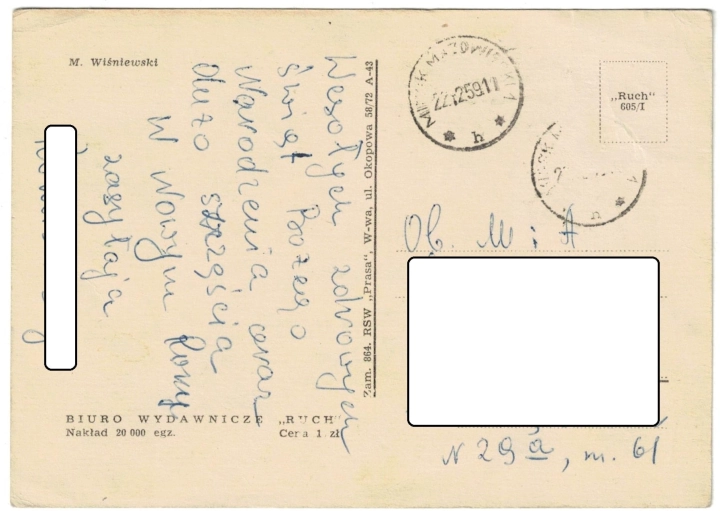 M. Wiśniewski
Wesołych zdrowych
Świąt Bożego
Narodzenia oraz
dużo szczęścia
W Nowym Roku
zasyłają
BIURO WYDAWNICZE „RUCH”
Nakład 20 000 egz. Cena 1 zł
Zam. 864. RSW „Prasa”, W-wa, ul. Okopowa 58/72 A-43
MIŃSK MAZOWIECKI 1
22.12.59.11
h
„Ruch”
605/I
MIŃSK M
1
h
Ob. M i A
N 29a, m. 61